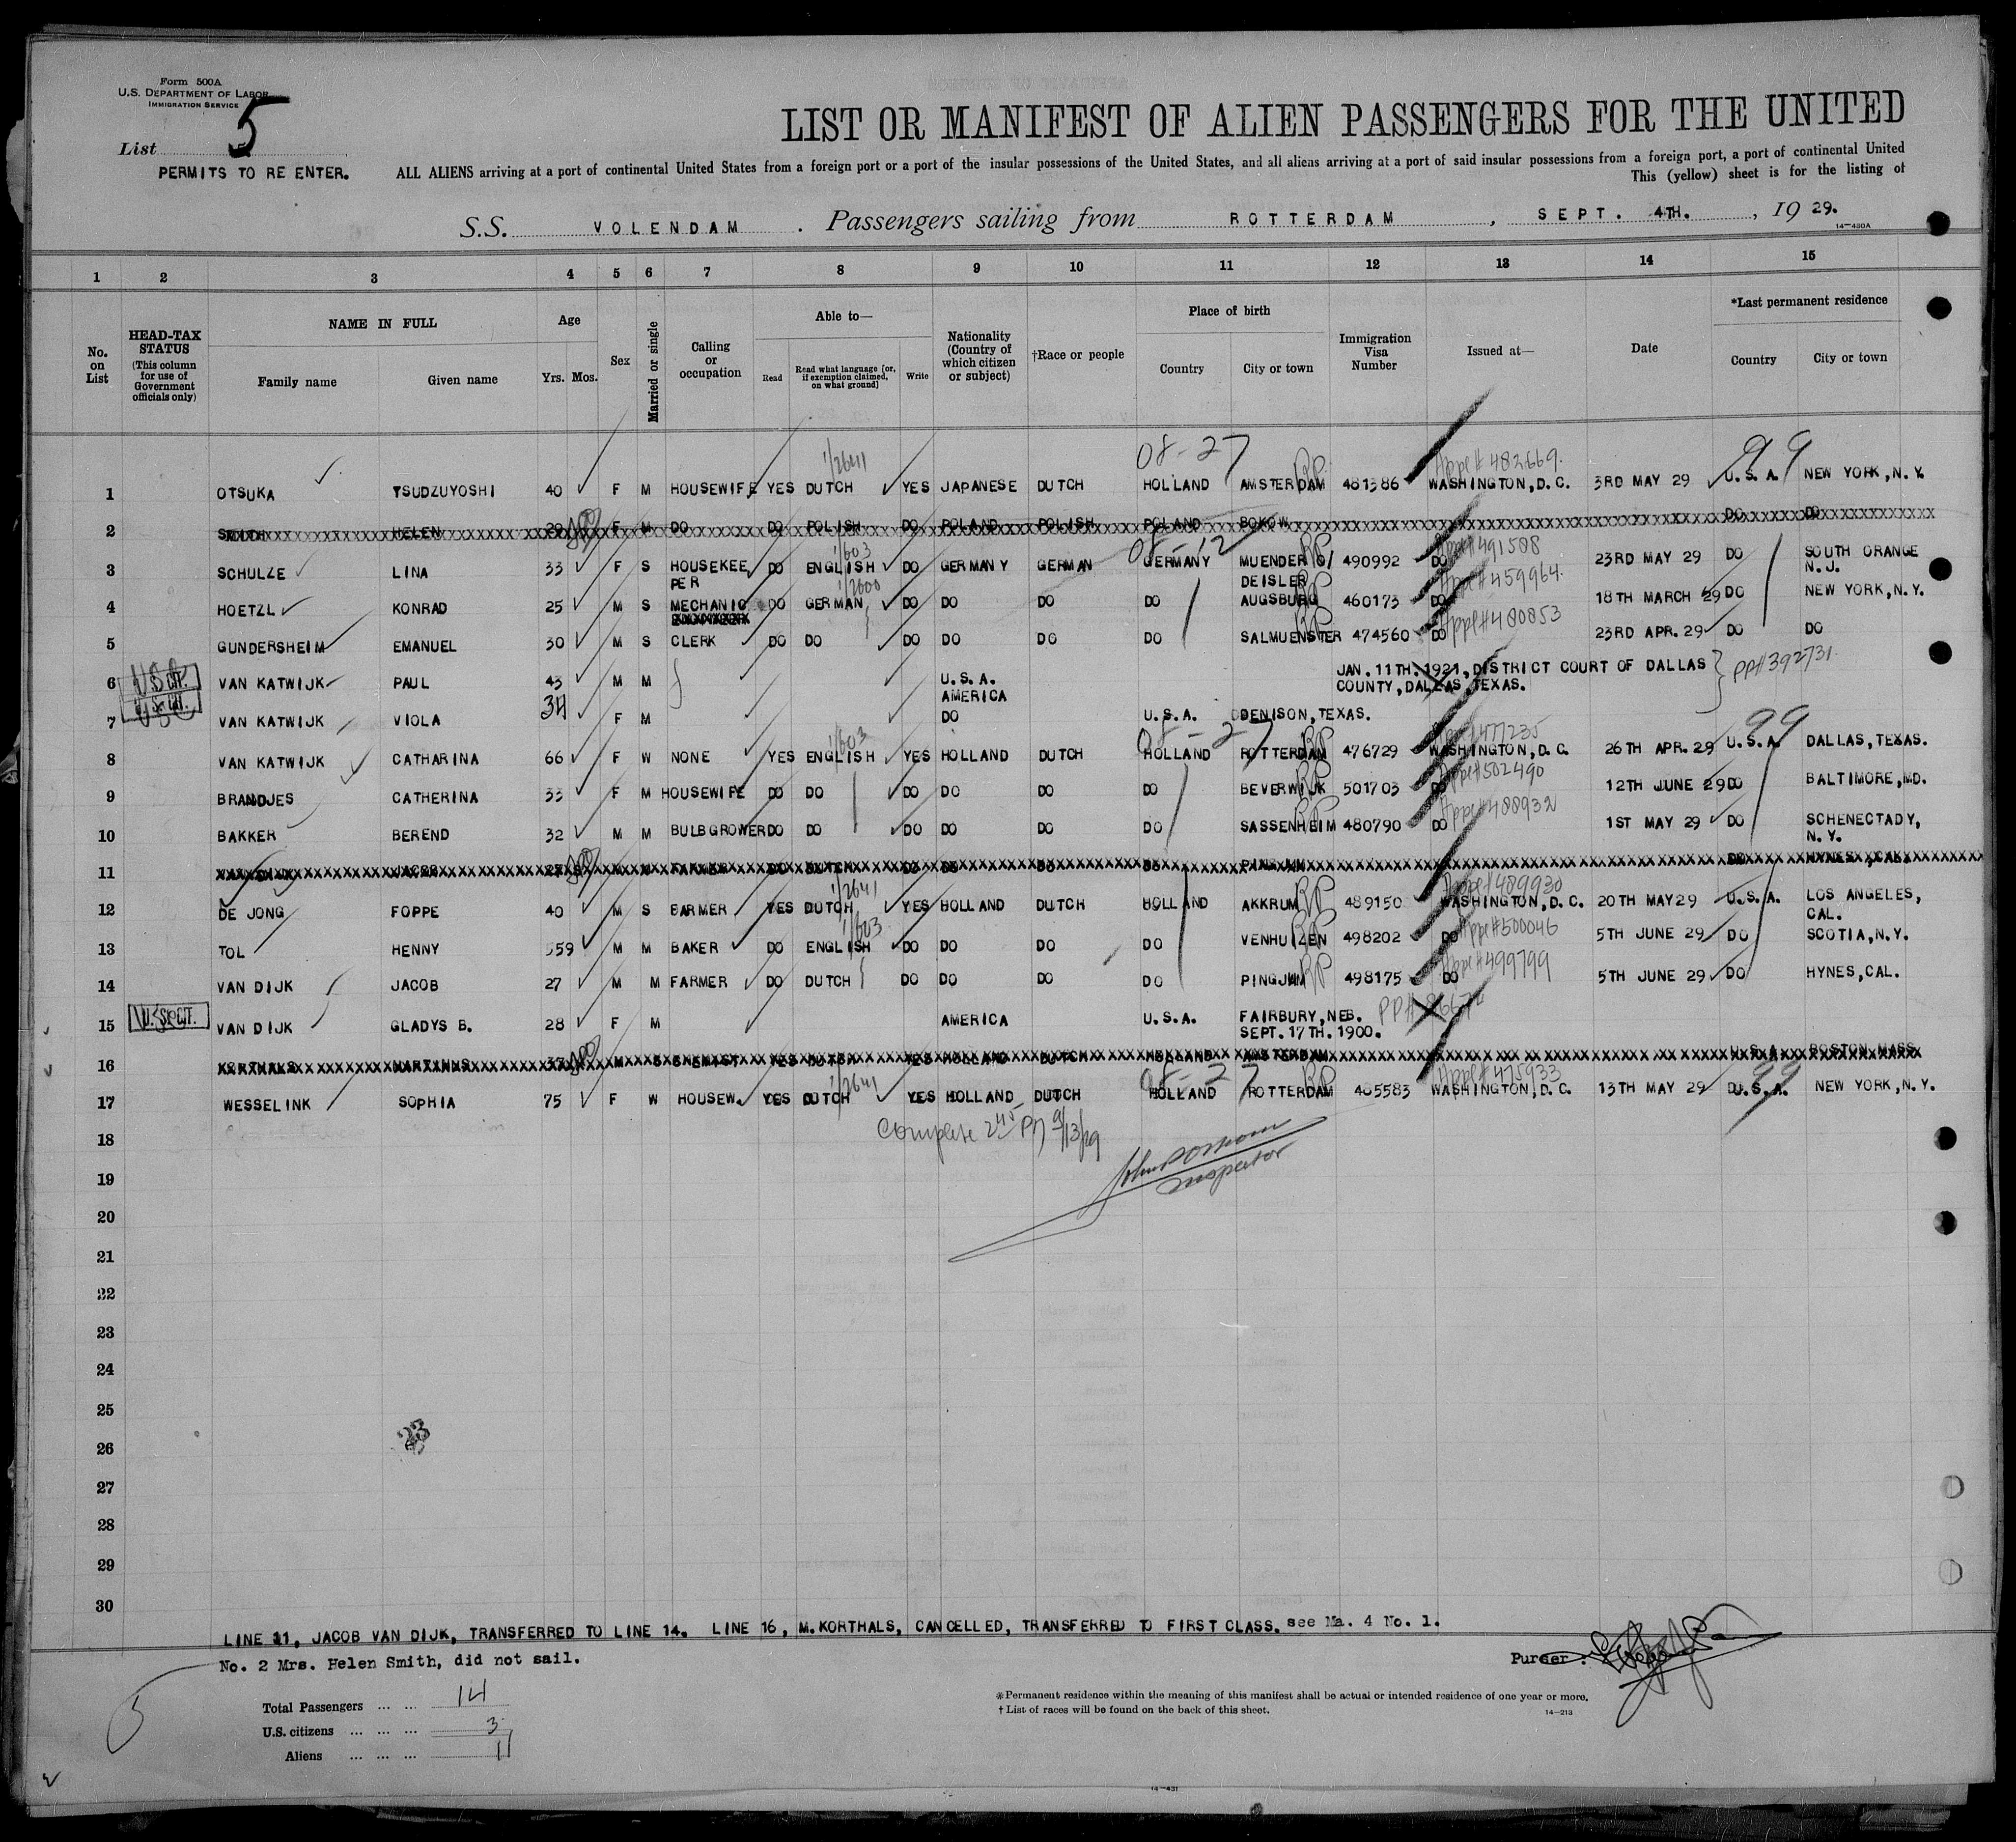 Form 500A
U.S. DEPARTMENT OF LABOR
IMMIGRATION SERVICE
List 5
PERMITS TO RE ENTER.
LIST OR MANIFEST OF ALIEN PASSENGERS FOR THE UNITED
ALL ALIENS arriving at a port of continental United States from a foreign port or a port of the insular possessions of the United States, and all aliens arriving at a port of said insular possessions from a foreign port, a port of continental United
This (yellow) sheet is for the listing of
S.S. VOLENDAM . Passengers sailing from ROTTERDAM , SEPT. 4TH. , 19 29.
14—430A
1 2 3 4 5 6 7 8 9 10 11 12 13 14 15
No. on List
HEAD-TAX STATUS (This column for use of Government officials only)
NAME IN FULL
Family name Given name
Age
Yrs. Mos.
Sex
Married or single
Calling or occupation
Able to—
Read
Read what language [or, if exemption claimed, on what ground]
Write
Nationality (Country of which citizen or subject)
†Race or people
Place of birth
Country City or town
Immigration Visa Number
Issued at—
Date
*Last permanent residence
Country City or town
1/2641 08-27 RP Appl# 482669. 99
1 OTSUKA TSUDZUYOSHI 40 F M HOUSEWIFE YES DUTCH YES JAPANESE DUTCH HOLLAND AMSTERDAM 481386 WASHINGTON,D.C. 3RD MAY 29 U.S.A. NEW YORK,N.Y.
2 SMITH HELEN 29 F M DO DO POLISH DO POLAND POLISH POLAND BOKOW DO DO
1/603 08-12 RP Appl#491508
3 SCHULZE LINA 33 F S HOUSEKEE PER DO ENGLISH DO GERMANY GERMAN GERMANY MUENDER O/ DEISLER 490992 DO 23RD MAY 29 DO SOUTH ORANGE N.J.
1/2000 RP Appl#459964.
4 HOETZL KONRAD 25 M S MECHANIC DO GERMAN DO DO DO DO AUGSBURG 460173 DO 18TH MARCH 29 DO NEW YORK,N.Y.
RP Appl#480853
5 GUNDERSHEIM EMANUEL 30 M S CLERK DO DO DO DO DO DO SALMUENSTER 474560 DO 23RD APR. 29 DO DO
6 U.S. CIT. VAN KATWIJK PAUL 43 M M U.S.A. AMERICA JAN. 11TH. 1921, DISTRICT COURT OF DALLAS COUNTY, DALLAS, TEXAS. PP#392731.
7 U.S. CIT. VAN KATWIJK VIOLA 34 F M DO U.S.A. DENISON, TEXAS.
1/603 08-27 RP Appl#477235 99
8 VAN KATWIJK CATHARINA 66 F W NONE YES ENGLISH YES HOLLAND DUTCH HOLLAND ROTTERDAM 476729 WASHINGTON,D.C. 26TH APR. 29 U.S.A. DALLAS,TEXAS.
RP Appl#502490
9 BRANDJES CATHERINA 33 F M HOUSEWIFE DO DO DO DO DO DO BEVERWIJK 501703 DO 12TH JUNE 29 DO BALTIMORE,MD.
RP Appl#488932
10 BAKKER BEREND 32 M M BULBGROWER DO DO DO DO DO DO SASSENHEIM 480790 DO 1ST MAY 29 DO SCHENECTADY, N.Y.
11 VAN DIJK JACOB 27 M M FARMER DO DUTCH DO DO DO DO PINGJUM DO HYNES ,CAL.
1/2641 RP Appl#489930
12 DE JONG FOPPE 40 M S FARMER YES DUTCH YES HOLLAND DUTCH HOLLAND AKKRUM 489150 WASHINGTON,D.C. 20TH MAY29 U.S.A. LOS ANGELES, CAL.
1/603 RP Appl#500046
13 TOL HENNY 59 M M BAKER DO ENGLISH DO DO DO DO VENHUIZEN 498202 DO 5TH JUNE 29 DO SCOTIA,N.Y.
RP Appl#499799
14 VAN DIJK JACOB 27 M M FARMER DO DUTCH DO DO DO DO PINGJUM 498175 DO 5TH JUNE 29 DO HYNES,CAL.
15 U.S. CIT. VAN DIJK GLADYS B. 28 F M AMERICA U.S.A. FAIRBURY,NEB. SEPT. 17TH. 1900.
16 KORTHALS MARTINUS 37 M S CHEMIST YES DUTCH YES HOLLAND DUTCH HOLLAND AMSTERDAM U.S.A. BOSTON MASS
1/2641 08-27 RP Appl#475933 99
17 WESSELINK SOPHIA 75 F W HOUSEW. YES DUTCH YES HOLLAND DUTCH HOLLAND ROTTERDAM 485583 WASHINGTON,D.C. 13TH MAY 29 U.S.A. NEW YORK,N.Y.
18 Complete 2 45 PM 9/13/29
19 Inspector
20
21
22
23
24
25
26
27
28
29
30
LINE 11, JACOB VAN DIJK, TRANSFERRED TO LINE 14. LINE 16, M.KORTHALS, CANCELLED, TRANSFERRED TO FIRST CLASS. see Ma. 4 No. 1.
No. 2 Mrs. Helen Smith, did not sail.
Purser :
Total Passengers ... ... 14
U.S. citizens ... ... ... 3
Aliens ... ... ... 11
*Permanent residence within the meaning of this manifest shall be actual or intended residence of one year or more.
† List of races will be found on the back of this sheet.
14—213
14—431